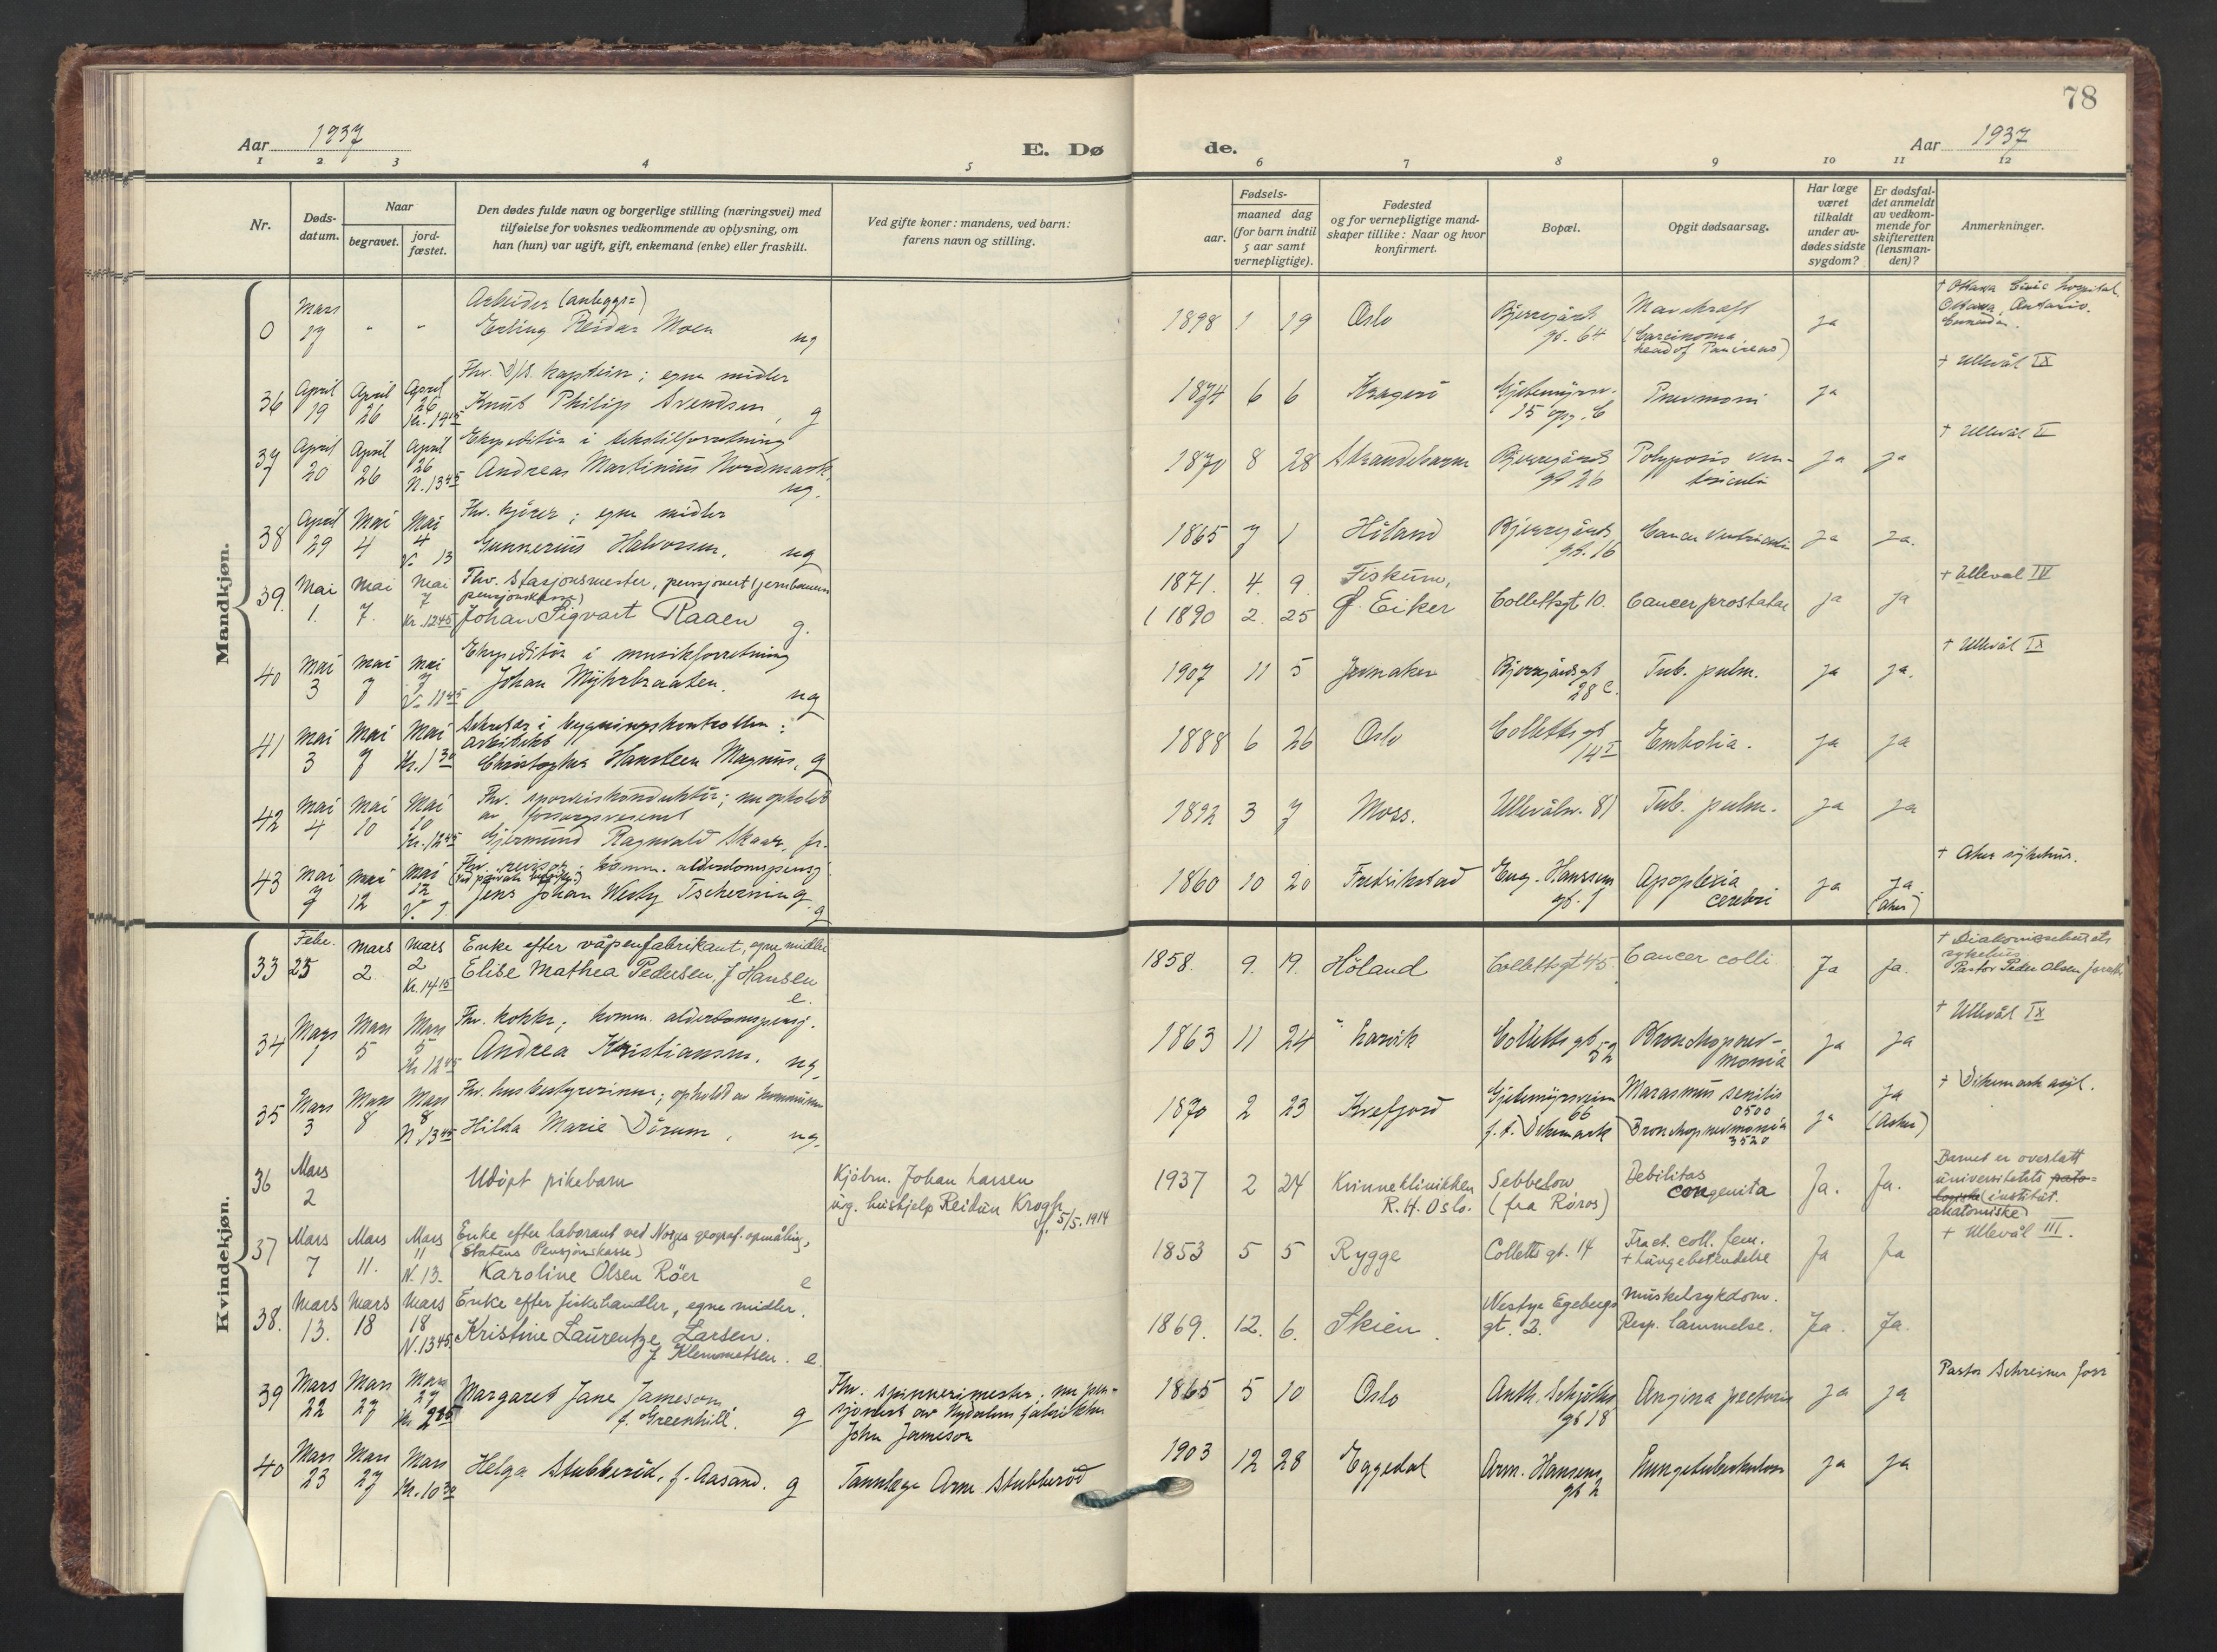 78
Aar 1937
E. Dø
de.
Aar 1937
1 2 3 4 5 6 7 8 9 10 11 12
Nr.
Døds-
datum.
Naar
begravet.
jord-
fæstet.
Den dødes fulde navn og borgerlige stilling (næringsvei) med
tilføielse for voksnes vedkommende av oplysning, om
han (hun) var ugift, gift, enkemand (enke) eller fraskilt.
Ved gifte koner: mandens, ved barn:
farens navn og stilling.
Fødsels-
aar.
maaned dag
(for barn indtil
5 aar samt
vernepligtige).
Fødested
og for vernepligtige mand-
skaper tillike: Naar og hvor
konfirmert.
Bopæl.
Opgit dødsaarsag.
Har læge
været
tilkaldt
under av-
dødes sidste
sygdom?
Er dødsfal-
det anmeldt
av vedkom-
mende for
skifteretten
(lensman-
den)?
Anmerkninger.
Mandkjøn.
0 Mars 17 " " Arbeider (anleggs=)
Erling Reidar Moen ug
1898 1 19 Oslo Bjerregårds
gt. 64
(Carcinoma
head of Pancreas)
ja
† Ottawa Civic hospital,
Ottawa, Ontario.
36 April 19 April 26 April 26 Kr. 14 15
Fhv. D/S. kaptein; egne midler
Knut Philip Svendsen, g
1874 6 6 Kragerø
15 opg. C
Pneumoni ja
† Ullevål IX
37 April 20 April 26 April 26 N. 13 45
Ekspeditør i tekstilforretning
Andreas Martinius Nordmark, ug.
1870 8 28 Strandebarm Bjerregårds
gt 26
Polyposis ven-
triculi
ja ja
† Ullevål II
38 April 29 Mai 4 Mai 4 V. 13
Fhv. kjører; egne midler
Gunnerius Halvorsen. ug
1865 7 1 Höland Bjerregårds
gt. 16
Cancer ventriculi ja ja.
39. Mai 1. Mai 7. Mai 7 Kr. 12 45
Fhv. Stasjonsmester, pensjonert (jernbanens
pensjonskasse)
Johan Sigvart Raaen g.
1871. 4. 9. Fiskum,
( 1890 2. 25 Ø. Eiker
Collettsgt 10. Cancer prostatae ja ja
† Ullevål IV
40 Mai 3 Mai 7 Mai 7 V. 11 45
Ekspeditør i musikforretning
Johan Myhrbraaten. ug
1907 11 5 Jevnaker Bjerregårdsgt
28 c.
Tub. pulm. ja ja.
† Ullevål IX
41 Mai 3 Mai 7 Mai Kr. 1 30
Sekretær i bygningskontrollen:
arkitekt
Christopher Hansteen Magnus, g
1888 6 26 Oslo Colletts gt
14 I
Embolia. ja ja
42 Mai 4 Mai 10 Mai 10 Kr. 12 45
Fhv. sporveiskonduktør; nu opholdt
av forsorgsvesenet
Gjermund Ragnvald Skaar, fr.
1892 3 7 Moss. Ullevålsv. 81 Tub. pulm. ja ja
43 Mai 7 Mai 12 Mai 12 V. 9.
Fhv. revisor; komm. alderdomspensj
Jens Johan Wesby Tscherning g
1860 10 20 Fredrikstad Eug. Hanssens
gt. 1
Apoplexia
cerebri
ja ja
(Aker)
† Aker sykehus.
Kvindekjøn.
33 Febr. 25 Mars 2. Mars 2 Kr. 14 15
Enke efter våpenfabrikant, egne midler
Elise Mathea Pedersen, f Hansen
e.
1858. 9. 19. Höland Collettsgt 45. Cancer colli Ja ja.
† Diakonissehusets
sykehus
Pastor Peder Olsen forrett.
34 Mars 1 Mars 5 Mars 5 Kr 12 45
Fhv. kokke; komm. alderdomspensj.
Andrea Kristiansen. ug.
1863 11 24 Larvik Colletts gt
52
Bronchopneu-
monia
ja ja
† Ullevål IX
35 Mars 3 Mars 8 Mars 8 N. 13 45
Fhv. husbestyrerinne; opholdt av kommunen
Hilda Marie Dörum, ug.
1870 2 23 Kvefjord Gjetemyrsveien
66
f. t. Dikemark
Marasmus senilis
0500
Bronchopneumonia
3520
ja ja
(Asker)
† Dikemark asyl.
36 Mars 2
Udöpt pikebarn
Kjöbm. Johan Larsen
ug. hushjelp Reidun Krogh
f. 5/5. 1914
1937 2 24 Kvinneklinikken
R. H. Oslo.
Sebbelow
(fra Röros)
Debilitas
congenita
Ja. Ja.
Barnet er overlatt
universitetets pato-
logiske (institut.
anatomiske)
37 Mars 7 Mars 11. Mars 11 N. 13.
Enke efter laborant ved Norges geograf. opmåling,
(Statens Pensjonskasse)
Karoline Olsen Röer e
1853 5 5 Rygge Colletts gt. 14 Fract. coll. fem.
+ lungebetendelse
Ja Ja
† Ullevål III.
38. Mars 13. Mars 18 Mars 18 N. 13 45
Enke efter fiskehandler, egne midler.
Kristine Laurentze Larsen.
f Klemmetsen. e.
1869. 12. 6. Skien. Westye Egebergs
gt. 2.
Muskelsykdom.
Resp. lammelse.
Ja. Ja.
39 Mars 22 Mars 27 Mars 27
Margaret Jane Jameson
f. Greenhill. g
Fhv. spinnerimester, nu pen-
sjonert av Nydalens fabrikker
John Jameson
1865 5 10 Oslo Anth. Schjøtts
gt 18
Angina pectoris ja ja
Pastor Schreiner forr
40 Mars 23 Mars 27 Mars Kr. 10 30
Helga Stubberud, f. Aasand. g
Tannlege Arne Stubberöd
1903 12 28 Eggedal Arm. Hansens
gt 2
Lungetuberkulose ja ja